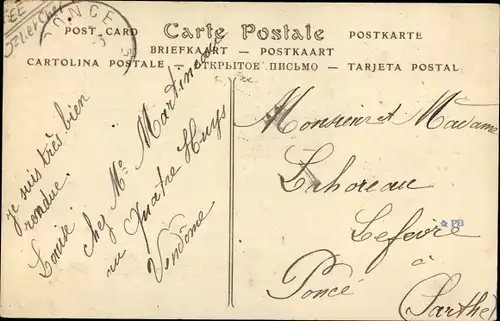 PONCÉ
POST CARD Carte Postale POSTKARTE
BRIEFKAART — POSTKAART
CARTOLINA POSTALE — ОТКРЫТОЕ ПИСЬМО — TARJETA POSTAL
je suis très bien
rendue.
Louise
chez Me Martineau
rue Quatre Huys
Vendôme
Monsieur et Madame
Lahoreau
Lefevre
à
Poncé
(Sarthe)
PB